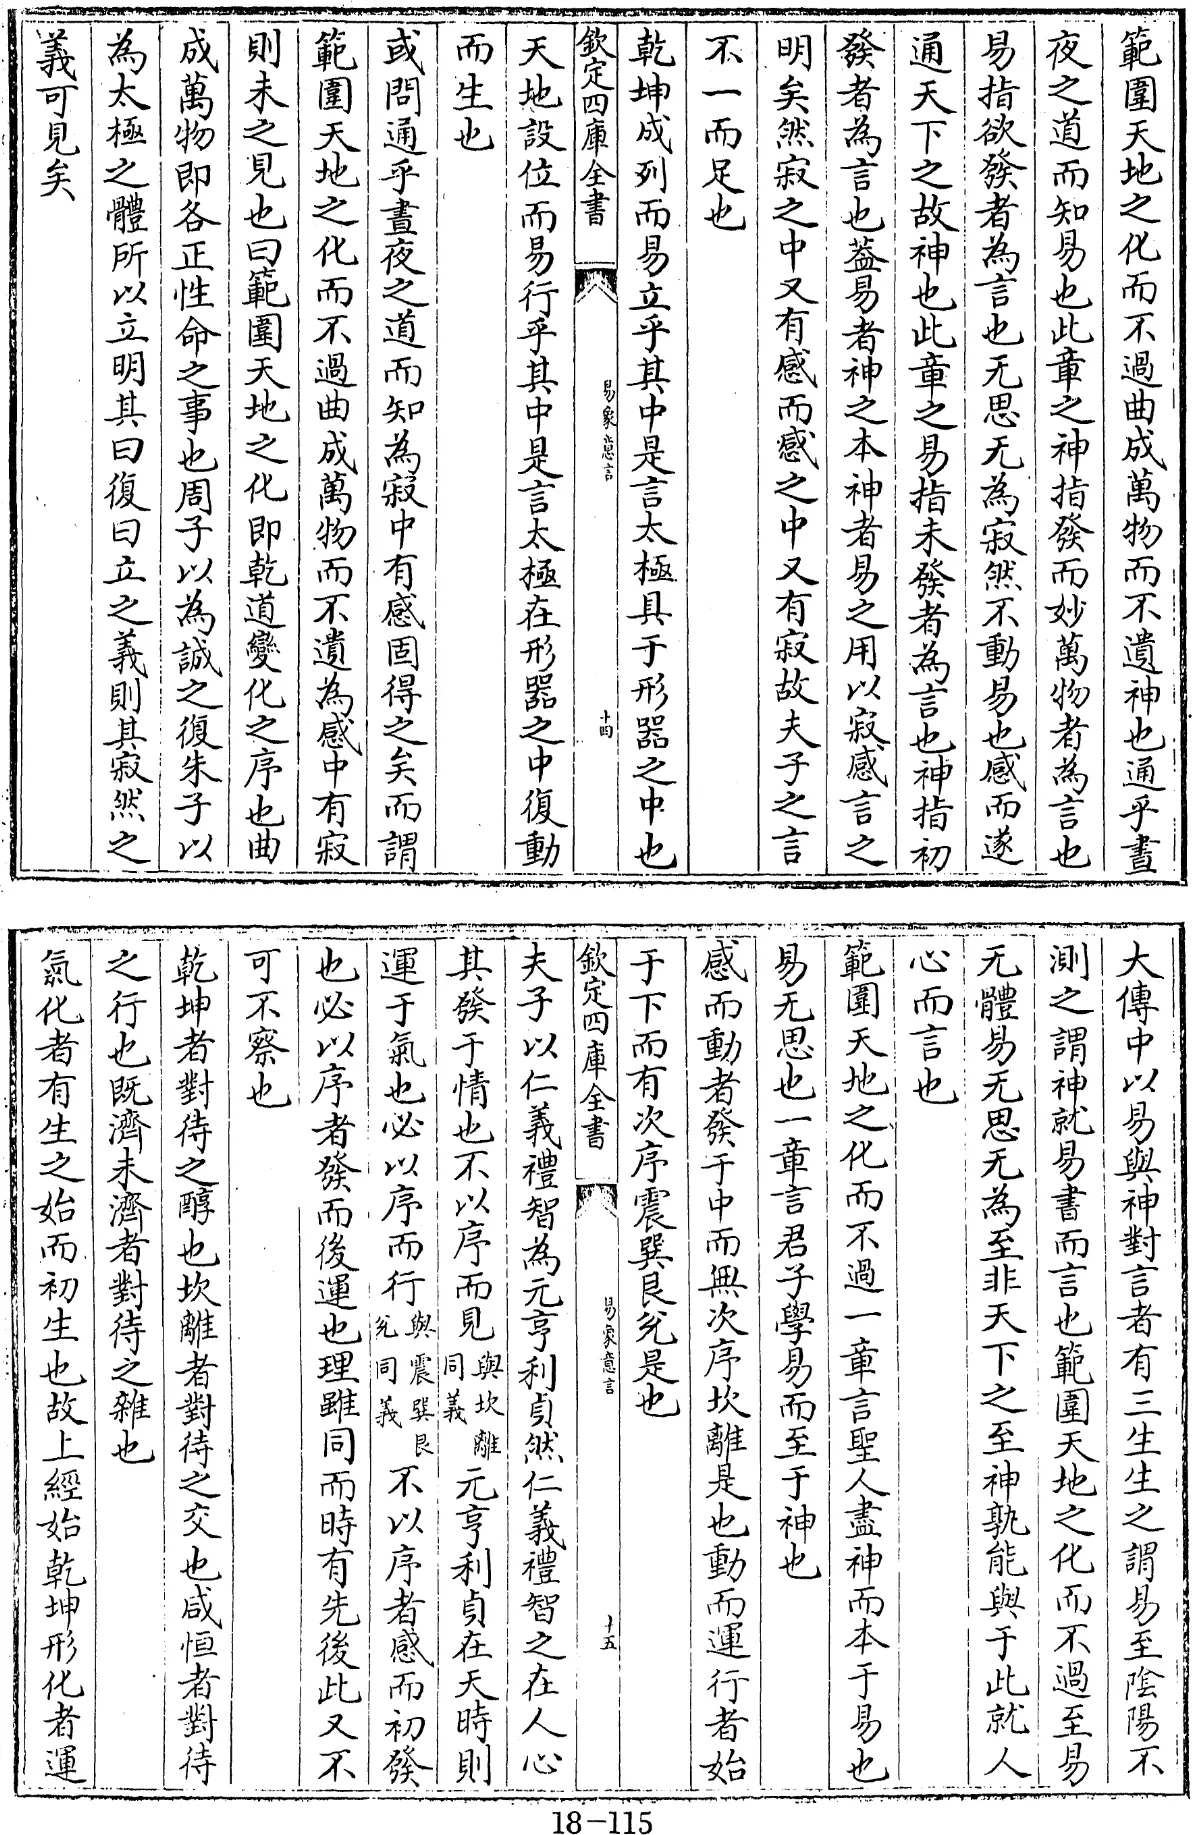 範圍天地之化而不過曲成萬物而不遺神也通乎晝
夜之道而知易也此章之神指發而妙萬物者為言也
易指欲發者為言也无思无為寂然不動易也感而遂
通天下之故神也此章之易指未發者為言也神指初
發者為言也葢易者神之本神者易之用以寂感言之
明矣然寂之中又有感而感之中又有寂故夫子之言
不一而足也
乾坤成列而易立乎其中是言太極具于形器之中也
欽定四庫全書
易象意言
十四
天地設位而易行乎其中是言太極在形器之中復動
而生也
或問通乎晝夜之道而知為寂中有感固得之矣而謂
範圍天地之化而不過曲成萬物而不遺為感中有寂
則未之見也曰範圍天地之化即乾道變化之序也曲
成萬物即各正性命之事也周子以為誠之復朱子以
為太極之體所以立明其曰復曰立之義則其寂然之
義可見矣
大傳中以易與神對言者有三生生之謂易至陰陽不
測之謂神就易書而言也範圍天地之化而不過至易
无體易无思无為至非天下之至神孰能與于此就人
心而言也
範圍天地之化而不過一章言聖人盡神而本于易也
易无思也一章言君子學易而至于神也
感而動者發于中而無次序坎離是也動而運行者始
于下而有次序震巽艮兌是也
欽定四庫全書
易象意言
十五
夫子以仁義禮智為元亨利貞然仁義禮智之在人心
其發于情也不以序而見與坎離同義元亨利貞在天時則
運于氣也必以序而行與震巽艮兌同義不以序者感而初發
也必以序者發而後運也理雖同而時有先後此又不
可不察也
乾坤者對待之醇也坎離者對待之交也咸恒者對待
之行也既濟未濟者對待之雜也
氣化者有生之始而初生也故上經始乾坤形化者運
18-115